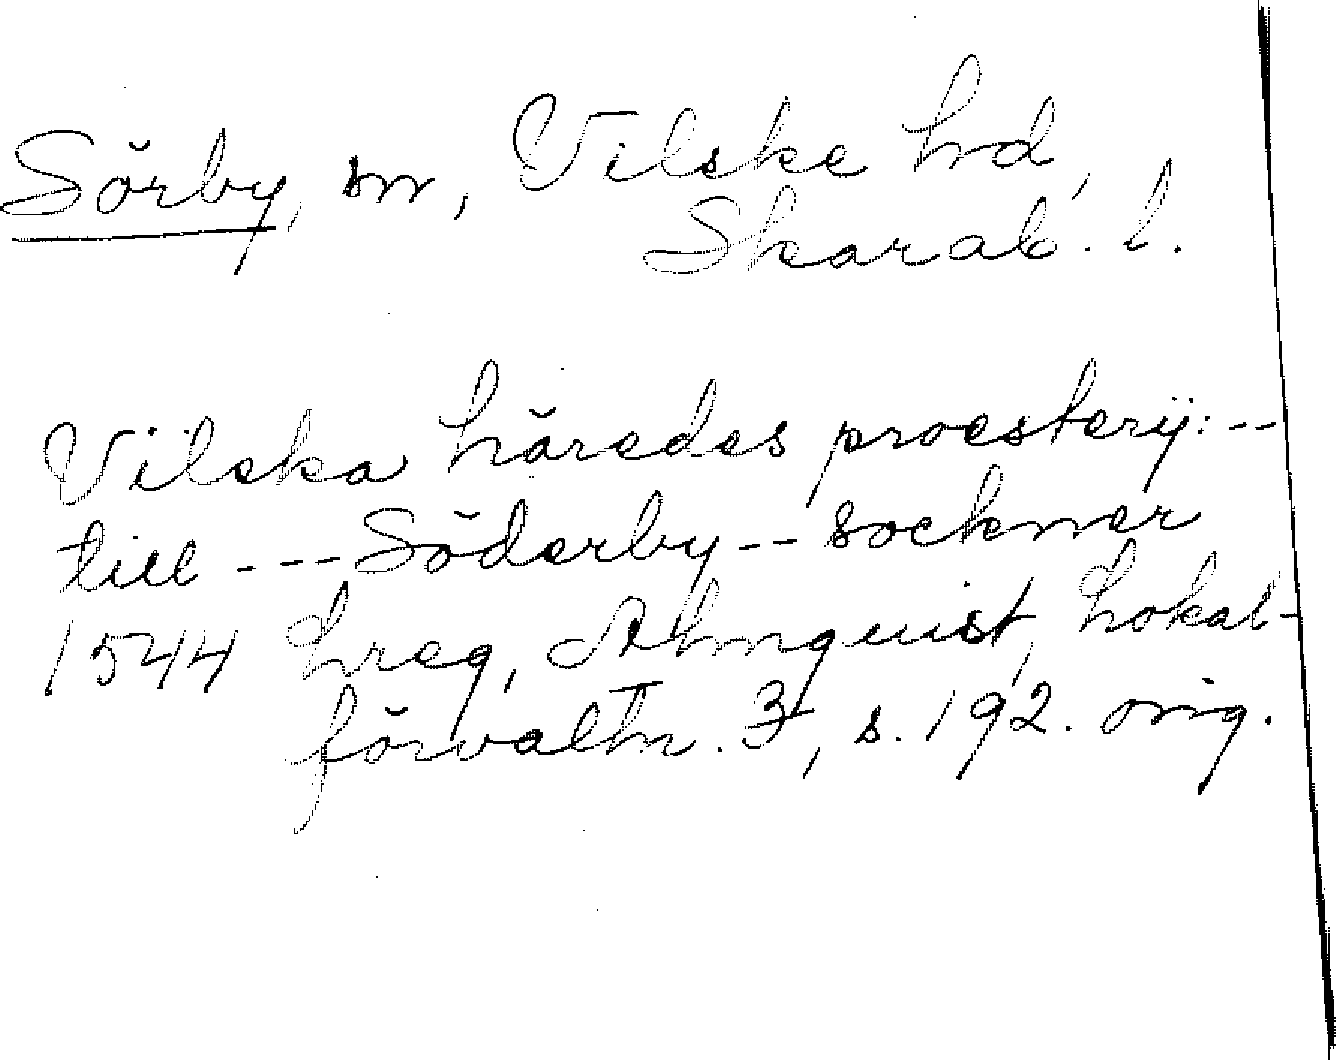 Sörby, sn, Vilske hd,
Skarab. l.
Vilska häredes proesterij:--
till ---Söderby--sockner
1544 hreg, Almquist, Lokal-
förvaltn. 3, s. 192. orig.